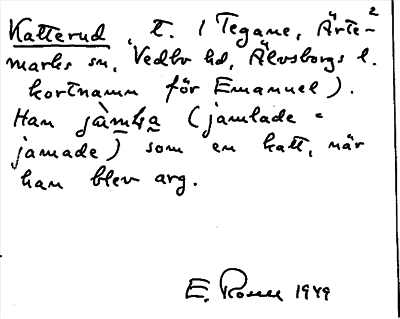 Katterud, t. 1 Tegane, Ärte-²
marks sn, Vedbo hd, Älvsborgs l.
kortnamn för Emanuel).
Han jàmḷa (jamlade =
jamade) som en katt, när
han blev arg.
E. 1949